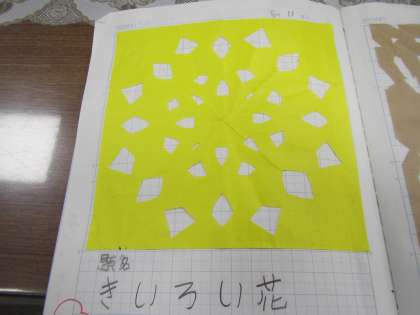 題名
きいろい花